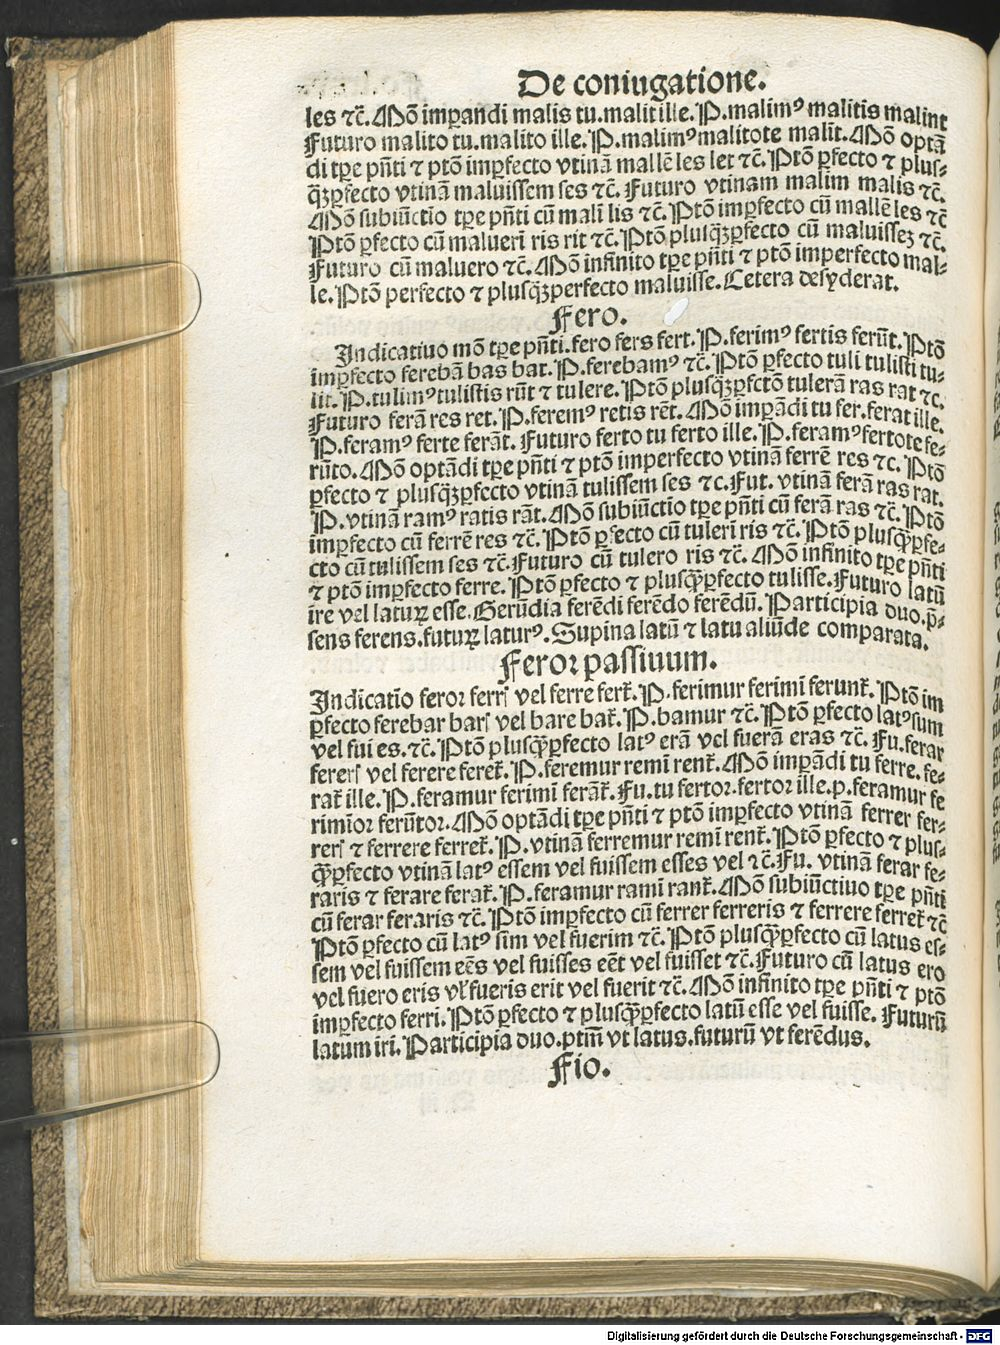 De coniugatione.
les ⁊c̄. Mō imꝑandi malis tu. malit ille. P. malimꝰ malitis malint
Futuro malito tu. malito ille. P. malimꝰ malitote malīt. Mō optā
di tꝑe pn̄ti ⁊ ptō imꝑfecto vtinā mallē les let ⁊c̄. Ptō ꝑfecto ⁊ plus⸗
qꝫꝑfecto vtinā maluissem ses ⁊c̄. Futuro vtinam malim malis ⁊c̄.
Mō subiūctio tꝑe pn̄ti cū malī lis ⁊c̄. Ptō imꝑfecto cū mallē les ⁊c̄
Ptō ꝑfecto cū maluerī ris rit ⁊c̄. Ptō plusqꝫꝑfecto cū maluisseꝫ ⁊c̄.
Futuro cū maluero ⁊c̄. Mō infinito tꝑe pn̄ti ⁊ ptō imperfecto mal⸗
le. Ptō perfecto ⁊ plusqꝫperfecto maluisse. Cetera desyderat.
Fero.
Indicatiuo mō tꝑe pn̄ti. fero fers fert. P. ferimꝰ fertis ferūt. Ptō
imꝑfecto ferebā bas bat. P. ferebamꝰ ⁊c̄. Ptō ꝑfecto tuli tulisti tu⸗
lit. P. tulimꝰ tulistis rūt ⁊ tulere. Ptō plusqꝫꝑfctō tulerā ras rat ⁊c.
Futuro ferā res ret. P. feremꝰ retis rēt. Mō imꝑādi tu fer. ferat ille.
P. feramꝰ ferte ferāt. Futuro ferto tu ferto ille. P. feramꝰ fertote fe⸗
rūto. Mō optādi tꝑe pn̄ti ⁊ ptō imperfecto vtinā ferrē res ⁊c. Ptō
ꝑfecto ⁊ plusqꝫꝑfecto vtinā tulissem ses ⁊c. Fut. vtinā ferā ras rat.
P. vtinā ramꝰ ratis rāt. Mō subiūctio tꝑe pn̄ti cū ferā ras ⁊c̄. Ptō
imꝑfecto cū ferrē res ⁊c̄. Ptō ꝑfecto cū tulerī ris ⁊c̄. Ptō plusꝙ̄ꝑfe⸗
cto cū tulissem ses ⁊c̄. Futuro cū tulero ris ⁊c̄. Mō infinito tꝑe pn̄ti
⁊ ptō imꝑfecto ferre. Ptō ꝑfecto ⁊ plusꝙ̄ꝑfecto tulisse. Futuro latū
ire vel laturꝝ esse. Gerūdia ferēdi ferēdo ferēdū. Participia duo. p̄⸗
sens ferens. futurꝝ laturꝰ. Supina latū ⁊ latu aliūde comparata.
Feror passiuum.
Indicatīo feror ferrꝭ vel ferre fert᷑. P. ferimur ferimī ferunt᷑. Ptō im
ꝑfecto ferebar barꝭ vel bare bat᷑. P. bamur ⁊c̄. Ptō ꝑfecto latꝰ sum
vel fui es. ⁊c̄. Ptō plusꝙ̄ꝑfecto latꝰ erā vel fuerā eras ⁊c̄. Fu. ferar
fererꝭ vel ferere feret᷑. P. feremur remī rent᷑. Mō imꝑādi tu ferre. fe⸗
rat᷑ ille. P. feramur ferimī ferāt᷑. Fu. tu fertor. fertor ille. p. feramur fe
rimīor ferūtor. Mō optādi tꝑe pn̄ti ⁊ ptō imꝑfecto vtinā ferrer fer⸗
rerꝭ ⁊ ferrere ferret᷑. P. vtinā ferremur remī rent᷑. Ptō ꝑfecto ⁊ plus⸗
ꝙ̄ꝑfecto vtinā latꝰ essem vel fuissem esses vel ⁊c̄. Fu. vtinā ferar fe⸗
raris ⁊ ferare ferat᷑. P. feramur ramī rant᷑. Mō subiūctiuo tꝑe pn̄ti
cū ferar feraris ⁊c̄. Ptō imꝑfecto cū ferrer ferreris ⁊ ferrere ferret᷑ ⁊c̄
Ptō ꝑfecto cū latꝰ sim vel fuerim ⁊c̄. Ptō plusꝙ̄ꝑfecto cū latus es⸗
sem vel fuissem eēs vel fuisses eēt vel fuisset ⁊c̄. Futuro cū latus ero
vel fuero eris vł fueris erit vel fuerit ⁊c̄. Mō infinito tꝑe pn̄ti ⁊ ptō
imꝑfecto ferri. Ptō ꝑfecto ⁊ plusꝙ̄ꝑfecto latū esse vel fuisse. Futurū
latum iri. Participia duo. ptm̄ vt latus. futurū vt ferēdus.
Fio.
Digitalisierung gefördert durch die Deutsche Forschungsgemeinschaft - DFG